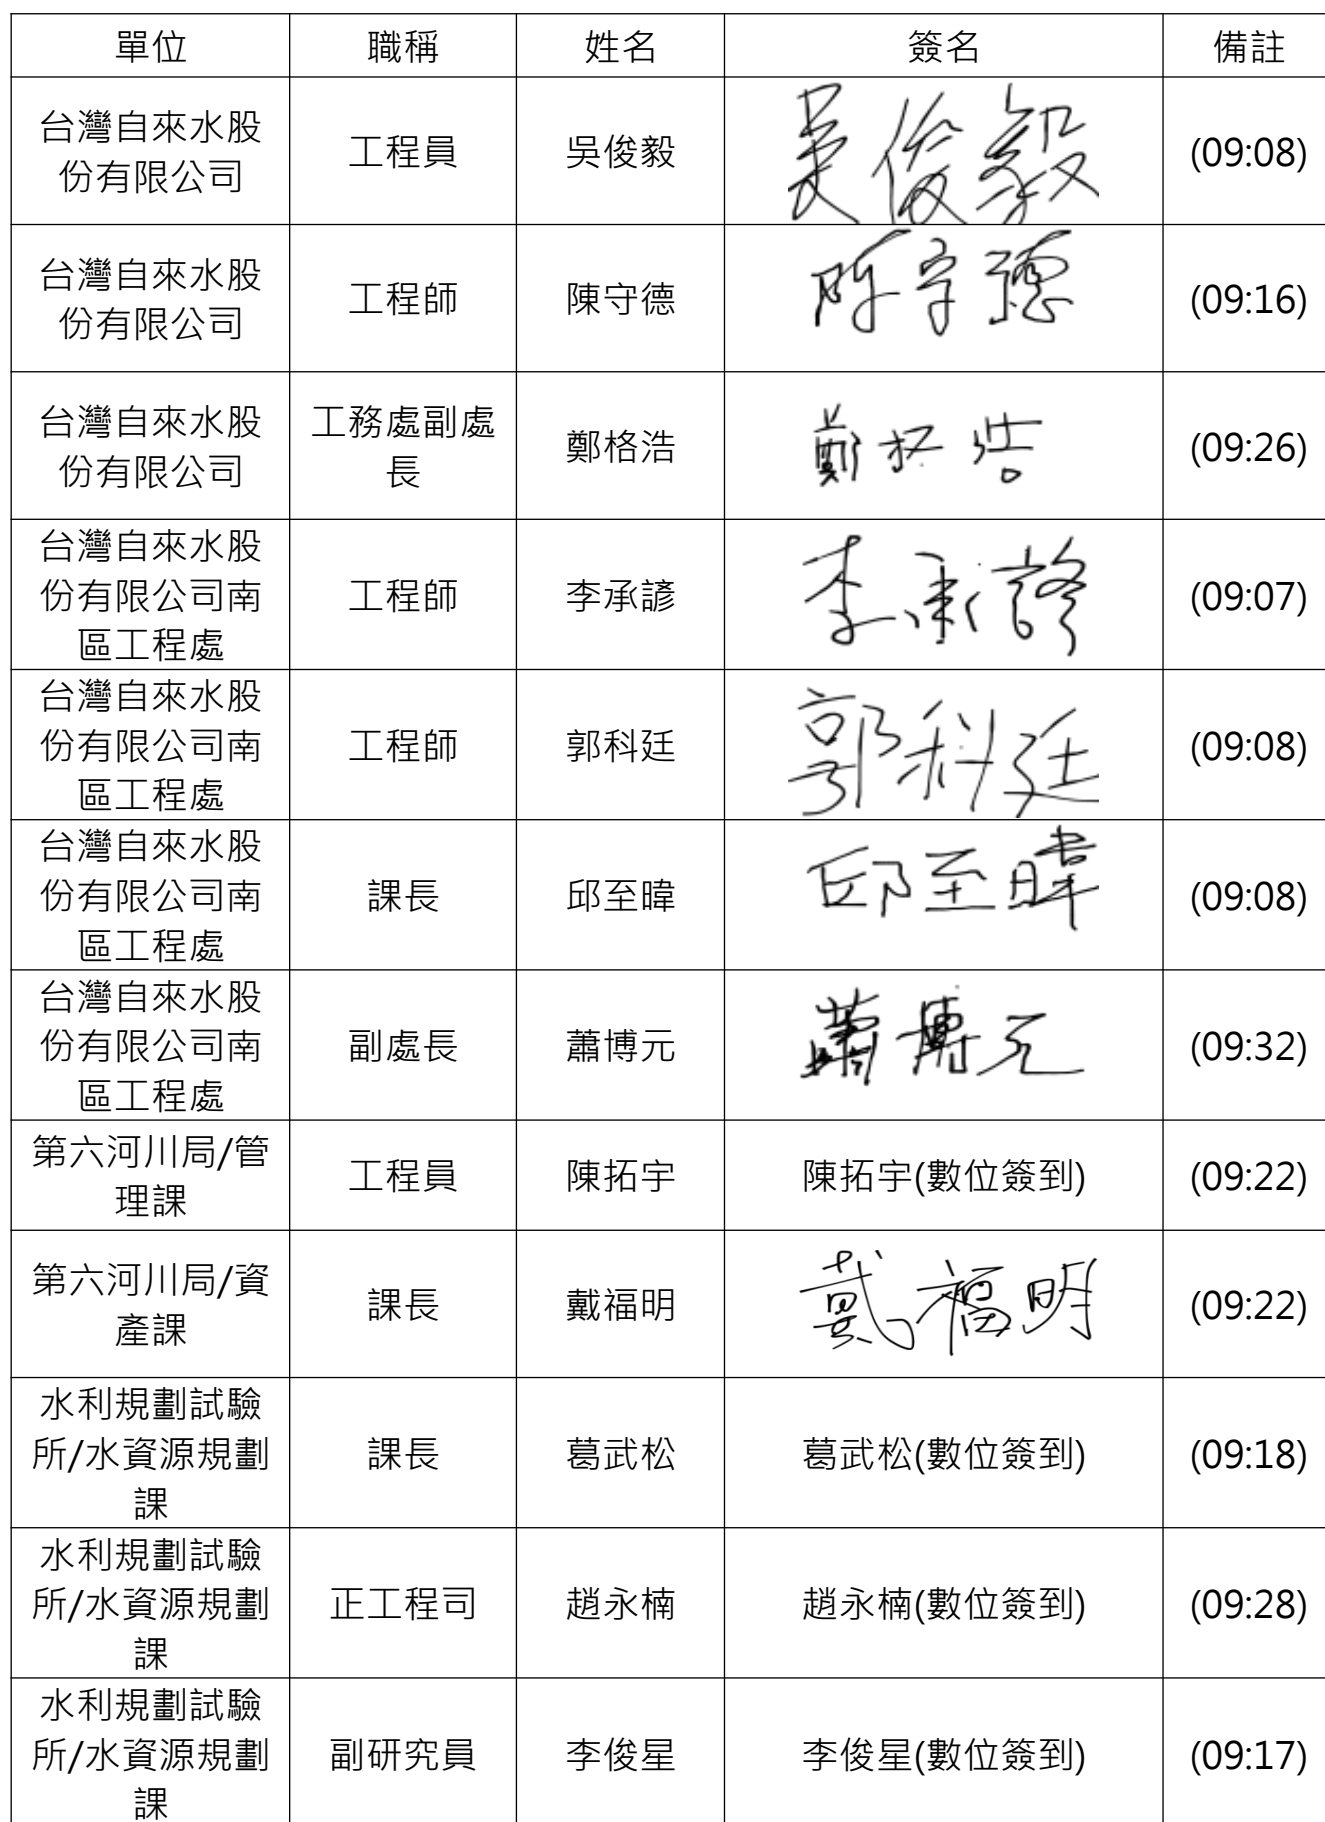 單位 職稱 姓名 簽名 備註
台灣自來水股
份有限公司 工程員 吳俊毅 吳俊毅 (09:08)
台灣自來水股
份有限公司 工程師 陳守德 陳守德 (09:16)
台灣自來水股
份有限公司 工務處副處
長 鄭格浩 鄭格浩 (09:26)
台灣自來水股
份有限公司南
區工程處 工程師 李承諺 李承諺 (09:07)
台灣自來水股
份有限公司南
區工程處 工程師 郭科廷 郭科廷 (09:08)
台灣自來水股
份有限公司南
區工程處 課長 邱至暐 邱至暐 (09:08)
台灣自來水股
份有限公司南
區工程處 副處長 蕭博元 蕭博元 (09:32)
第六河川局/管
理課 工程員 陳拓宇 陳拓宇(數位簽到) (09:22)
第六河川局/資
產課 課長 戴福明 戴福明 (09:22)
水利規劃試驗
所/水資源規劃
課 課長 葛武松 葛武松(數位簽到) (09:18)
水利規劃試驗
所/水資源規劃
課 正工程司 趙永楠 趙永楠(數位簽到) (09:28)
水利規劃試驗
所/水資源規劃
課 副研究員 李俊星 李俊星(數位簽到) (09:17)